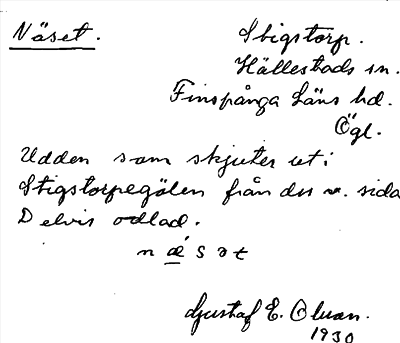 Näset.
Stigstorp.
Hällestads sn.
Finspånga Läns hd.
Ögl.
Udden som skjuter ut i
Stigstorpegölen från dess v. sida
Delvis odlad.
næ´sət
Gustaf E. Oluan.
1930